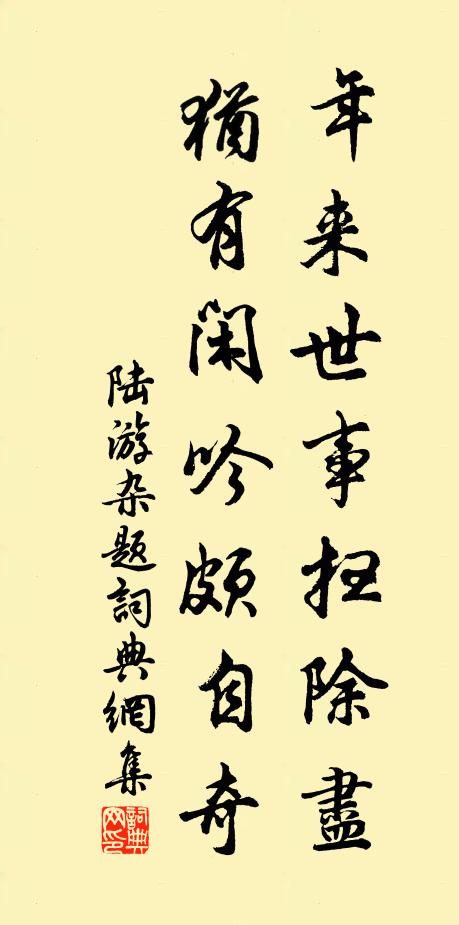 年来世事扫除盡
猶有閑吟頗自奇
陆游杂题詞典網集
詞典网印